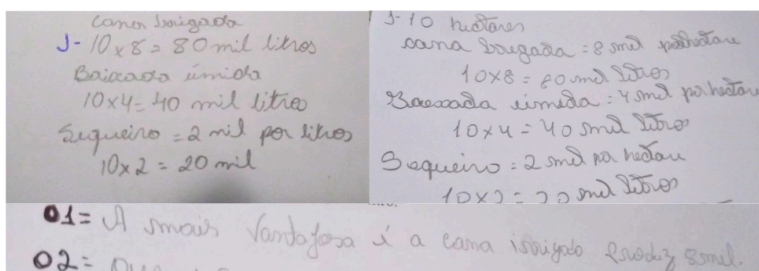 cana irrigada
J- 10 x 8 = 80 mil litros
Baixada úmida
10 x 4 = 40 mil litros
Sequeiro = 2 mil por litros
10 x 2 = 20 mil
J- 10 hectares
cana irrigada = 8 mil por hectare
10 x 8 = 80 mil litros
Baixada úmida = 4 mil por hectare
10 x 4 = 40 mil litros
Sequeiro = 2 mil por hectare
10 x 2 = 20 mil litros
01= A mais vantajosa i a cana irrigado produz 8 mil.
02=